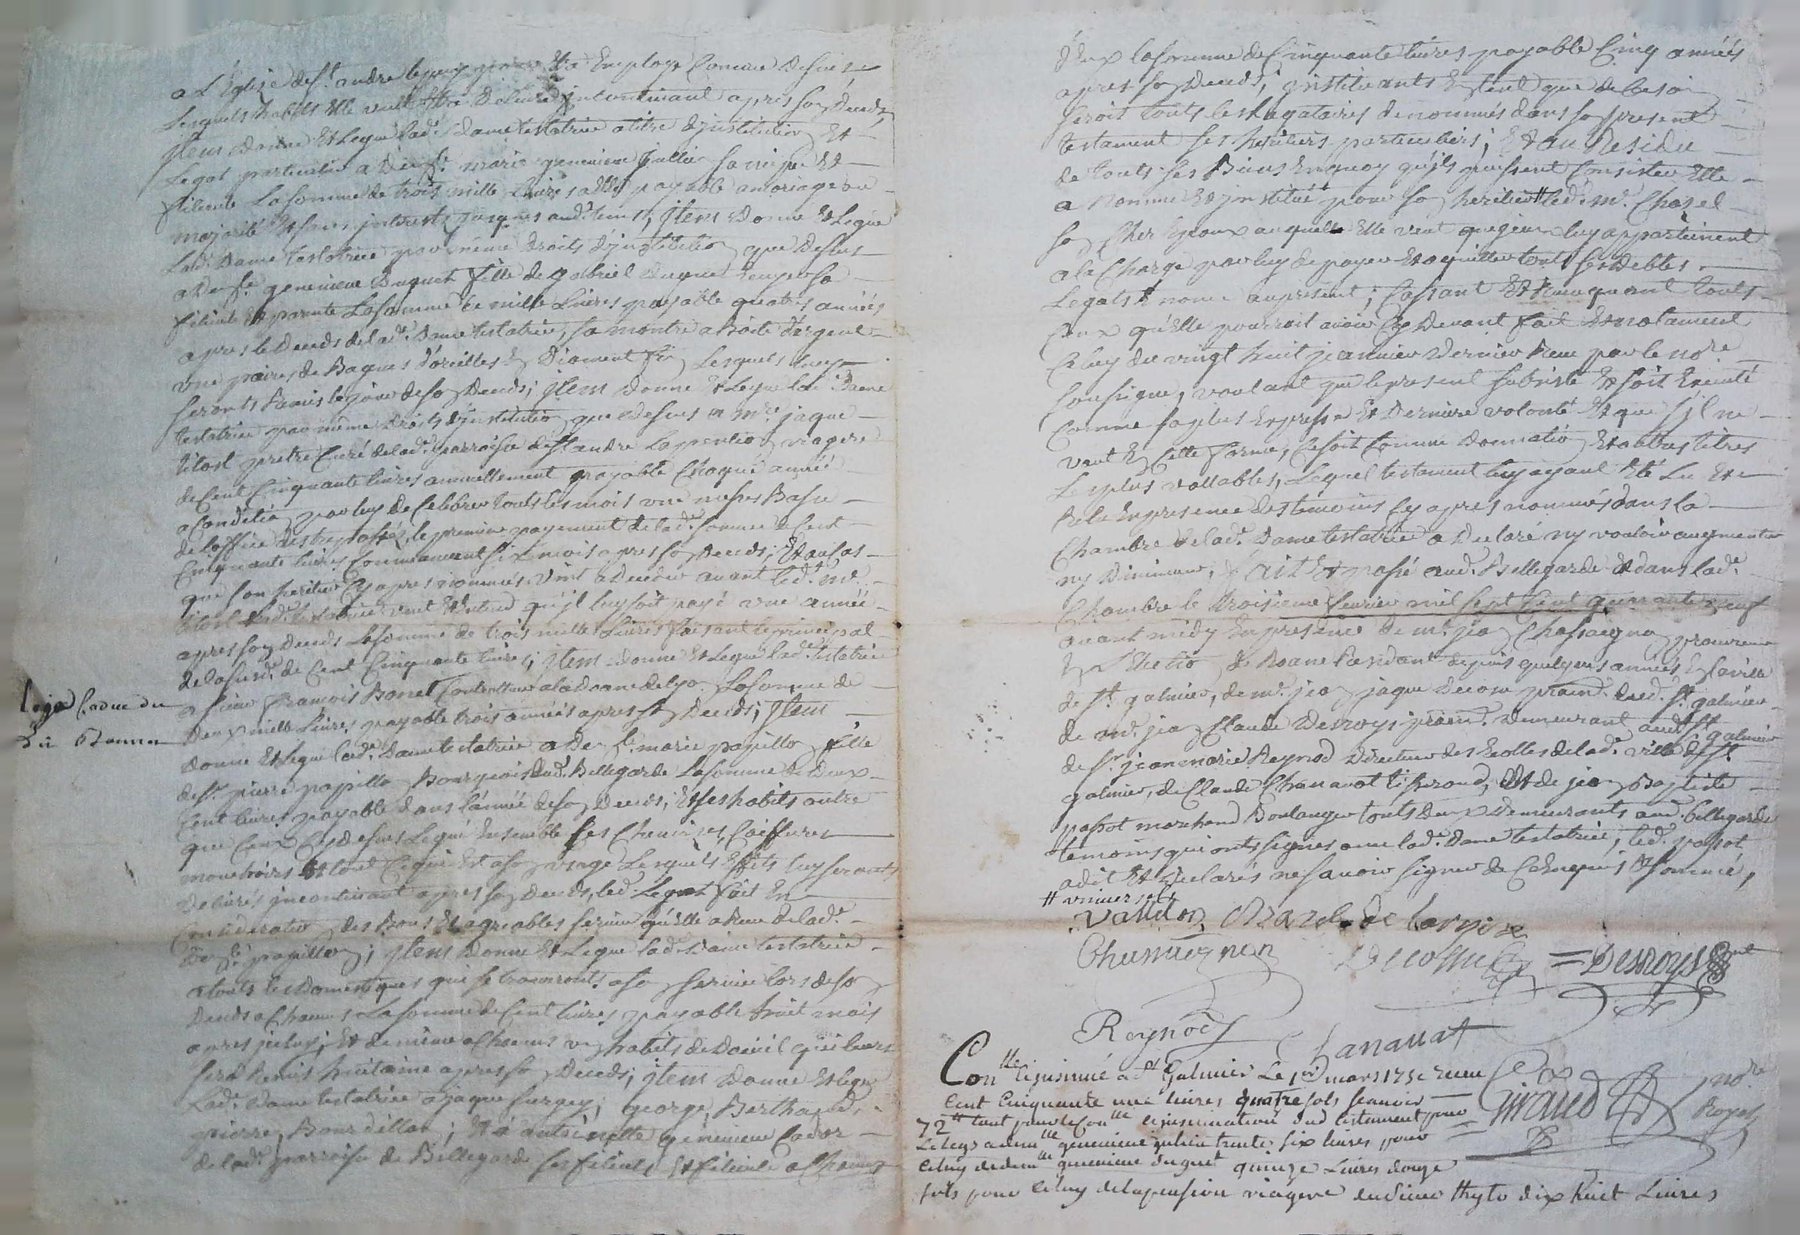 a L'Eglise de St andre le puy pour être Employé Comme dessus
Lesquels habits Elle veut être délivré incontinant apres son Deceds
Jtem donne Et Legue lade Dame testatrice a titre d'institution Et
Legat particulier a Delle marie genevieve Jullien sa niepce Et
filleule La somme de trois mille Livres payable a mariage ou
majorité Et sans interest jusques aud. temps, Jtem Donne Et Legue
Lade Dame testatrice par même droits d'institution que Dessus
a Delle genevieve Duguet fille de gabriel Duguet
filleule Et parente La somme de mille Livres payable quatres années
apres le Deceds de lade Dame testatrice, sa montre a Boete d'argent
une paires de Bagues d'oreilles En Diament fin Lesquels
seronts Remis le jour de son Deceds; Jtem donne Et Legue lade Dame
testatrice par même Droits d'institution que dessus a mre jaque
pretre Curé de lade parroisse de St andre La pention viagere
de Cent Cinquante livres annuellement payable Chaque année
a Condition par luy de Celebrer touts les mois une messes Basse
de l'office des trepassés, le premier payement de lade somme de Cent
Cinquante livres Commencent six mois apres son Deceds; Et au Cas
que son heritier Cy apres nommés vint a Deceder avant led. mre
lade testatrice veut Entend qu'il luy soit payé une année
apres son Deceds La somme de trois mille Livres faisant le principal
de lasusd. de Cent Cinquante livres; Jtem donne Et Legue lade testatrice
a sieur François Bonnet Controlleur a la Doane de Lyon La somme de
Deux mille Livres payable trois années apres son Deceds; Jtem
Legs Caduc du
Sr Bonnet
Donne Et Legue lade Dame testatrice a Delle marie papillon fille
de Sr pierre papillon Bourgeois dud. Bellegarde La somme de Deux
Cent livres payable dans l'année de son Deceds, Et ses habits autre
que Ceux Cy Dessus Legué Ensemble ses Chemises, Coiffures
mouchoirs Et tout Ce qui Est a son usage Lesquels Effets luy seronts
Délivrés incontinant apres son Deceds, led. Legat fait En
Consideration des Bons Et agreables service qu'elle a Recu de lade
Delle papillon; Jtem Donne Et Legue lade Dame testatrice
a touts les Domestiques qui se trouveront a son service lors de son
Deceds a Chacuns La somme de Cent livres payable huit mois
apres jceluy; Et de même a Chacuns un habits de Deuil qui leurs
sera Remis huitaine apres son Deceds; Jtem Donne Et Legue
Lade Dame testatrice a jaque george, Berthaud,
pierre Bourdillon; Et a antoinette genevieve
de lade parroisse de Bellegarde ses filleuls Et filleule a Chacuns
D'eux la somme de Cinquante livres payable Cinq années
apres son Deceds; jnstituants En tant que de besoin
seroit touts les Legataires denommés dans son present
testament ses heritiers particuliers; Et au Residu
de touts ses Biens En quoy qu'ils puissent Consister Elle
a Nomme Et institué pour son heritier # led. mr Chazel
son Cher Epoux auquelle Elle veut que jceux luy appartienent
a la Charge par luy de payer Et aquitter touts ses debtes
Legats nomé au present; Cassant Et Revoquant touts
Ceux qu'Elle pourroit avoir Cy Devant fait Et notament
Celuy du vingt huit jeanvier dernier Reçu par le nore
soussigne, voulant que le present subsiste Et soit Executé
Comme sa plus Expresse Et Derniere volonté Et que s'il ne
vaut En Cette forme, Ce soit Comme Donnation Et autres titres
Les plus vallables, Lequel testament luy ayant Eté Lu Et
Relu En presence des temoins Cy apres nommés dans la
Chambre de lade Dame testatrice a Declaré ny vouloir augmenter
ny Diminuer, fait Et passé aud. Bellegarde Et dans lade
Chambre le troisieme fevrier mil sept Cent quarante neuf
avant midy En presence de mre jean Chassaignon procureur
En l'Election de Roane Residant depuis quelques années En la ville
de St galmier, de mre jean jaque Decosne praen. dud. St galmier
de mre jean Claude Desroys praen. demeurant aud. St galmier
de Sr jean marie Reynod Directeur des Ecolles de lade ville de St
galmier, de Claude Chanavat tisserand, Et de jean Baptiste
passot marchand Boulanger touts Deux Demeurants aud. bellegarde
temoins qui onts signes avec lade Dame testatrice, led. passot
a dit Et declarés ne savoir signer de Ce Enquis Et sommé,
# universel
Vallidon Chazel de
Chassaignon Decosne = Desroys
Reynod Chanavat
Conlle Et insinué a St Galmier Le 1er mars 1752 Receu
Cent Cinquante une livres quatre sols scavoir
72lt tant pour le conlle Et insinuation dud testament pour
Le legs a demlle genevieve julien trente six livres pour
Celuy de demlle genevieve duguet quinze Livres douze
sols pour Celuy de la pension viagere du sieur thylo dix huit Livres
Giraud nore Royal